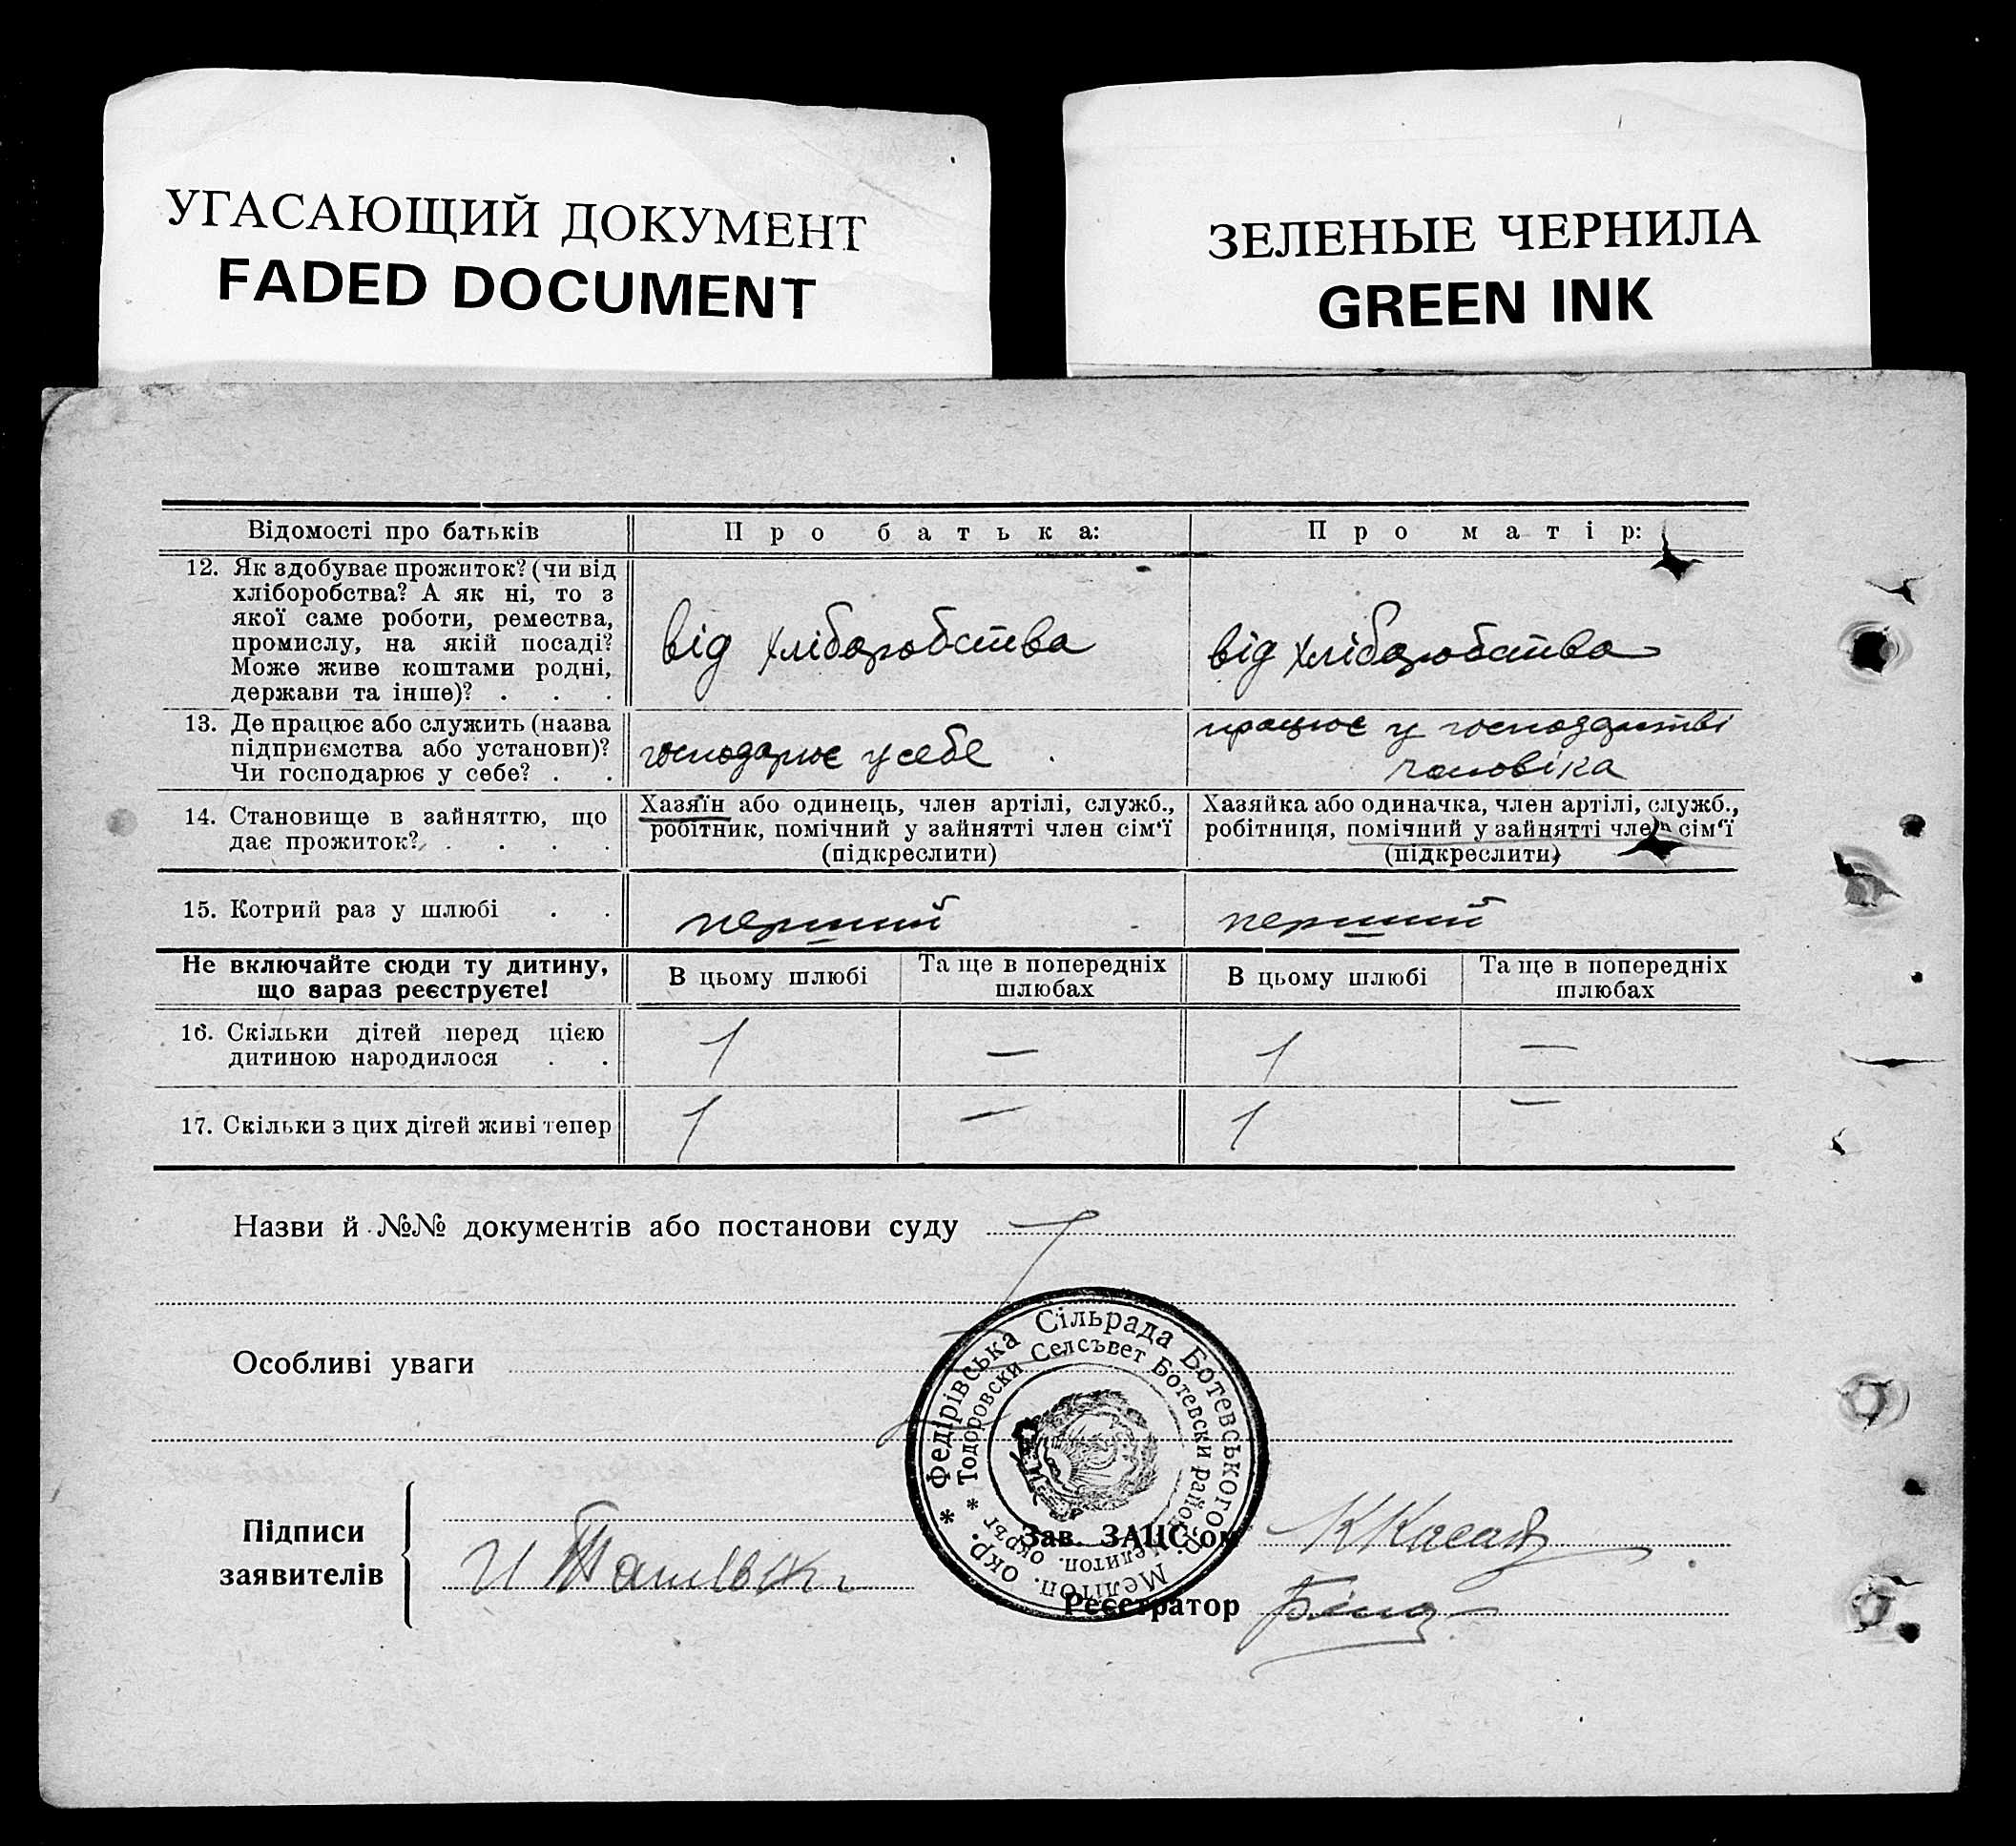 УГАСАЮЩИЙ ДОКУМЕНТ
FADED DOCUMENT
ЗЕЛЕНЫЕ ЧЕРНИЛА
GREEN INK
Відомості про батьків
Про батька:
Про матір:
12. Як здобуває прожиток? (чи від
хліборобства? А як ні, то з
якої саме роботи, ремества,
промислу, на якій посаді?
Може живе коштами родні,
держави та інше)? . . .
від хліборобства
від хліборобства
13. Де працює або служить (назва
підприємства або установи)?
Чи господарює у себе? . .
господарює у себе
працює у господарстві
чоловіка
14. Становище в зайняттю, що
дає прожиток? . . . .
Хазяїн або одинець, член артілі, служб.,
робітник, помічний у зайнятті член сім'ї
(підкреслити)
Хазяйка або одиначка, член артілі, служб.,
робітниця, помічний у зайнятті член сім'ї
(підкреслити)
15. Котрий раз у шлюбі . .
перший
перший
Не включайте сюди ту дитину,
що зараз реєструєте!
В цьому шлюбі
Та ще в попередніх
шлюбах
В цьому шлюбі
Та ще в попередніх
шлюбах
16. Скільки дітей перед цією
дитиною народилося . .
1
—
1
—
17. Скільки з цих дітей живі тепер
1
—
1
—
Назви й №№ документів або постанови суду
Особливі уваги
* Федірівська Сільрада Ботевського р. Мелітоп. окр.
* Тодоровски Селсъвет Ботевски район Мелитоп. окръг
Підписи
заявителів
Зав. ЗАЦС'ом
Реєстратор